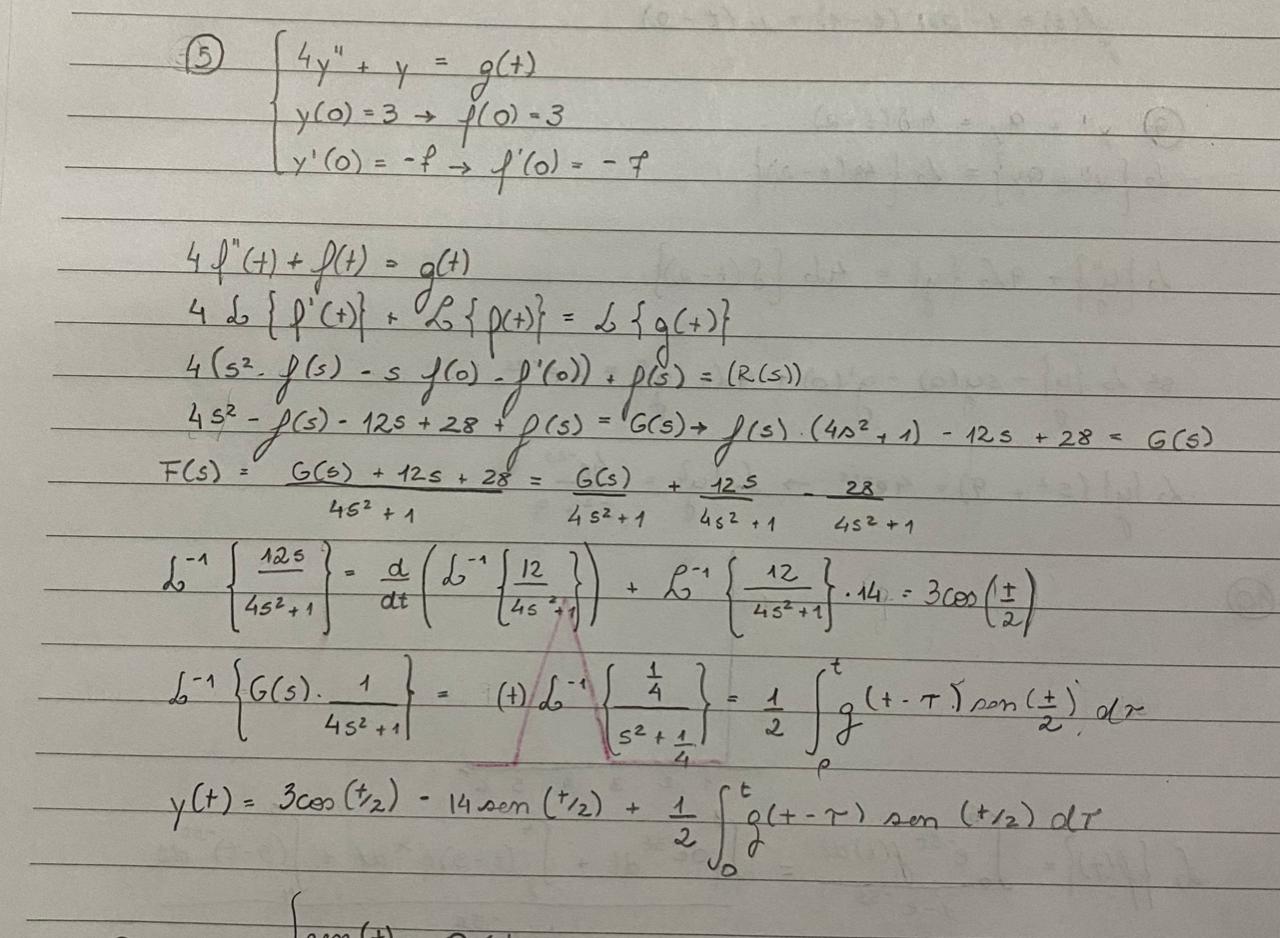 ⑤ { 4y" + y = g(t)
y(0) = 3 → f(0) = 3
y'(0) = -7 → f'(0) = -7
4 f"(t) + f(t) = g(t)
4 L{f'(t)} + L{f(t)} = L{g(t)}
4(s² · f(s) - s f(0) - f'(0)) + f(s) = (R(s))
4s² - f(s) - 12s + 28 + f(s) = G(s) → f(s) · (4s² + 1) - 12s + 28 = G(s)
F(s) = (G(s) + 12s + 28)/(4s² + 1) = G(s)/(4s² + 1) + 12s/(4s² + 1) - 28/(4s² + 1)
L⁻¹{12s/(4s² + 1)} = d/dt (L⁻¹{12/(4s² + 1)}) + L⁻¹{12/(4s² + 1)} · 14 = 3cos(t/2)
L⁻¹{G(s) · 1/(4s² + 1)} = (t) L⁻¹{(1/4)/(s² + 1/4)} = 1/2 ∫₀ᵗ g(t - τ) sen(t/2) dτ
y(t) = 3cos(t/2) - 14 sen(t/2) + 1/2 ∫₀ᵗ g(t - τ) sen(t/2) dτ